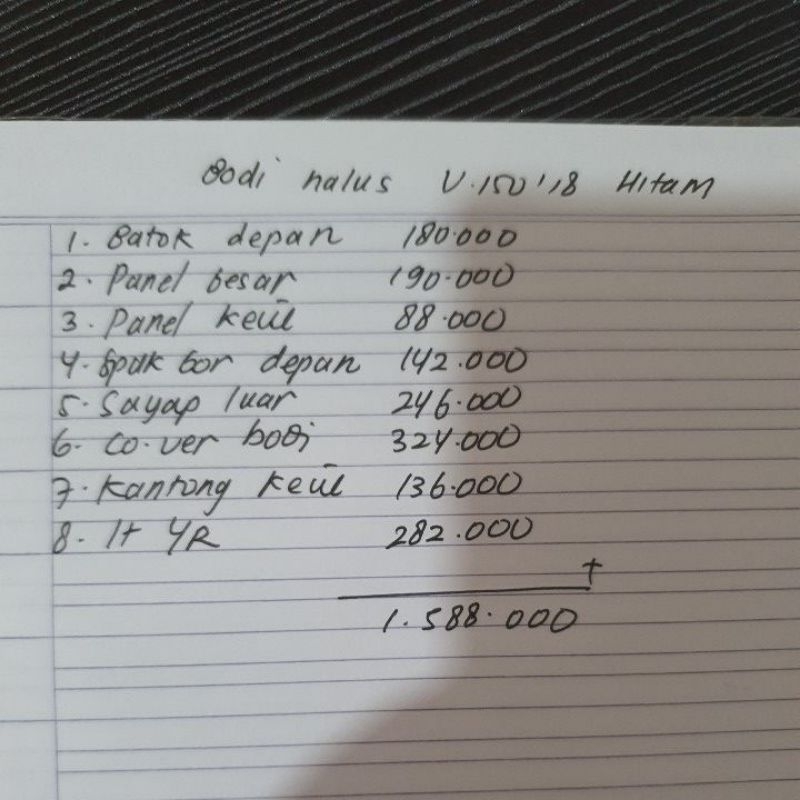 Bodi halus V.150'18 Hitam
1. Batok depan 180.000
2. Panel besar 190.000
3. Panel kecil 88.000
4. Spak bor depan 142.000
5. Sayap luar 246.000
6. Co.ver bodi 324.000
7. Kantong kecil 136.000
8. 1t YR 282.000
+
1.588.000